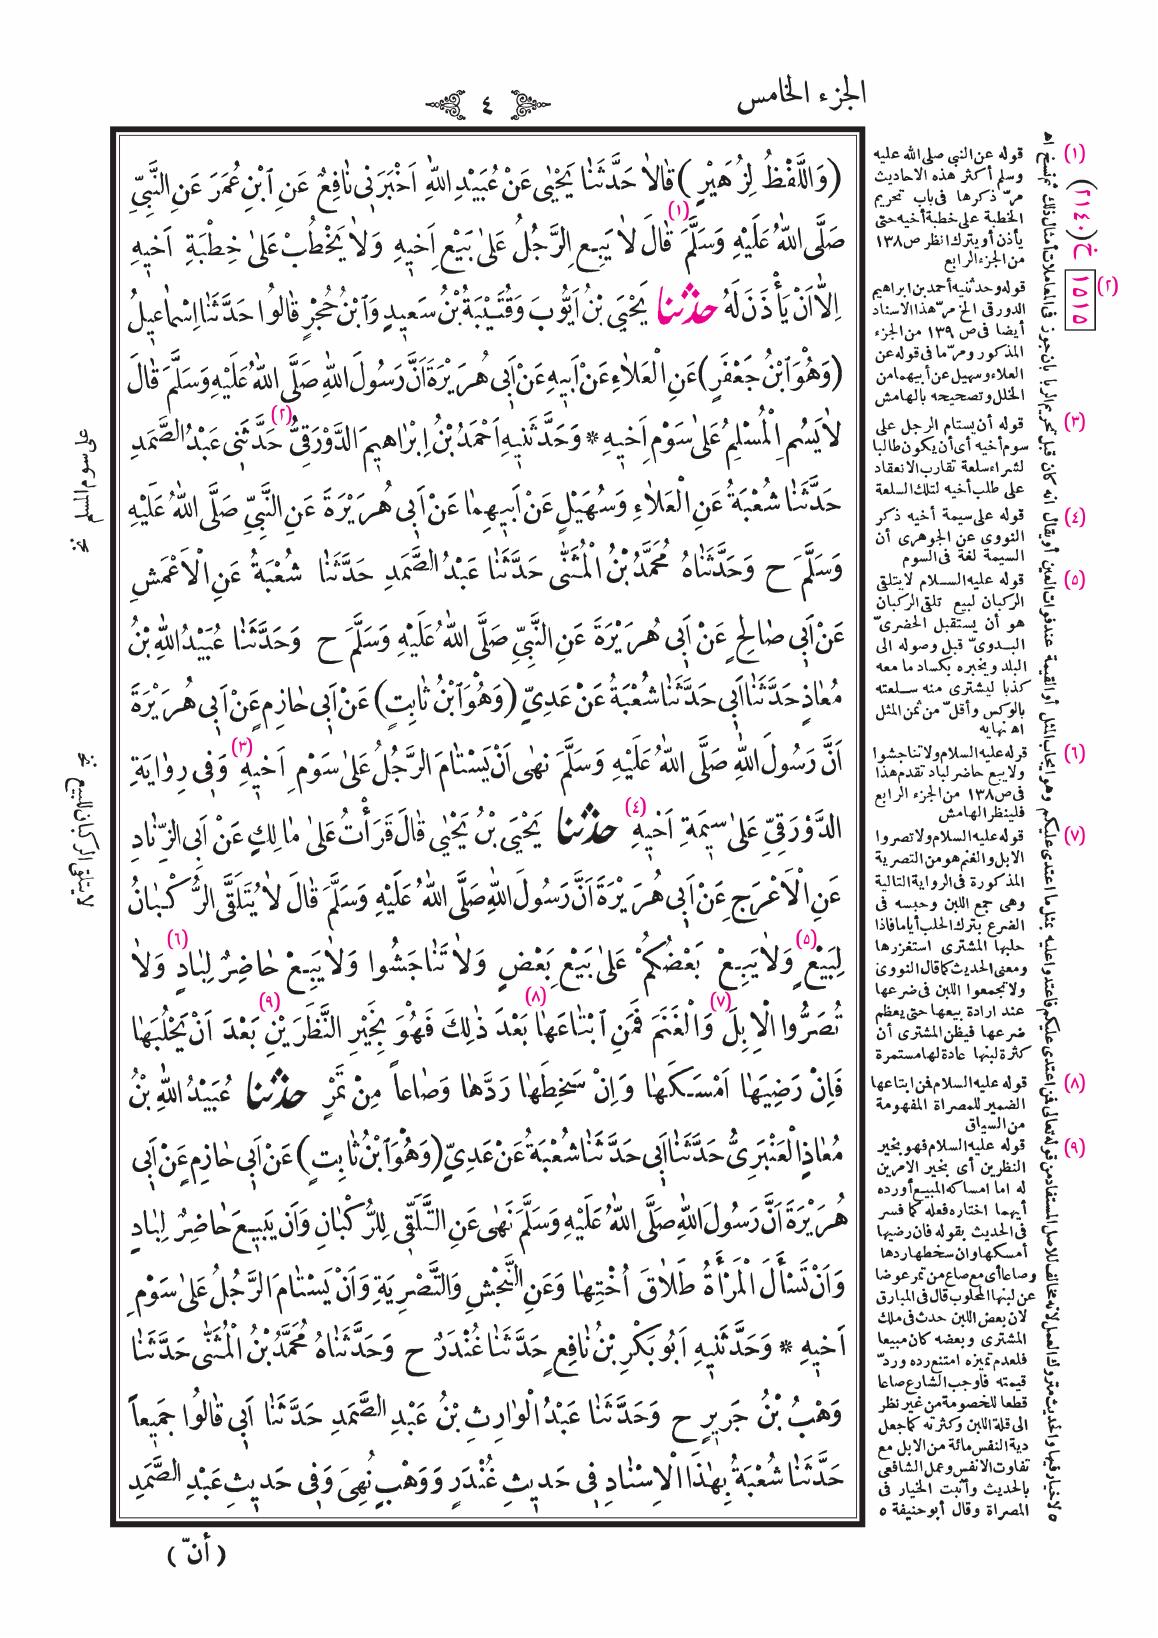 الجزء الخامس
٤
(وَاللَّفْظُ لِزُهَيْرٍ) قَالَا حَدَّثَنَا يَحْيٰى عَنْ عُبَيْدِ اللهِ اَخْبَرَنِي نَافِعٌ عَنِ ابْنِ عُمَرَ عَنِ النَّبِيِّ
صَلَّى اللهُ عَلَيْهِ وَسَلَّمَ (١) قَالَ لَا يَبِعِ الرَّجُلُ عَلٰى بَيْعِ اَخِيهِ وَلَا يَخْطُبْ عَلٰى خِطْبَةِ اَخِيهِ
اِلَّا اَنْ يَأْذَنَ لَهُ حدثنا يَحْيَى بْنُ اَيُّوبَ وَقُتَيْبَةُ بْنُ سَعِيدٍ وَابْنُ حُجْرٍ قَالُوا حَدَّثَنَا اِسْمَاعِيلُ
(وَهُوَ ابْنُ جَعْفَرٍ) عَنِ الْعَلَاءِ عَنْ اَبِيهِ عَنْ اَبِي هُرَيْرَةَ اَنَّ رَسُولَ اللهِ صَلَّى اللهُ عَلَيْهِ وَسَلَّمَ قَالَ
لَا يَسُمِ الْمُسْلِمُ عَلٰى سَوْمِ اَخِيهِ * وَحَدَّثَنِيهِ اَحْمَدُ بْنُ اِبْرَاهِيمَ الدَّوْرَقِيُّ (٢) حَدَّثَنِي عَبْدُ الصَّمَدِ
حَدَّثَنَا شُعْبَةُ عَنِ الْعَلَاءِ وَسُهَيْلٍ عَنْ اَبِيهِمَا عَنْ اَبِي هُرَيْرَةَ عَنِ النَّبِيِّ صَلَّى اللهُ عَلَيْهِ
وَسَلَّمَ ح وَحَدَّثَنَاهُ مُحَمَّدُ بْنُ الْمُثَنّٰى حَدَّثَنَا عَبْدُ الصَّمَدِ حَدَّثَنَا شُعْبَةُ عَنِ الْاَعْمَشِ
عَنْ اَبِي صَالِحٍ عَنْ اَبِي هُرَيْرَةَ عَنِ النَّبِيِّ صَلَّى اللهُ عَلَيْهِ وَسَلَّمَ ح وَحَدَّثَنَا عُبَيْدُ اللهِ بْنُ
مُعَاذٍ حَدَّثَنَا اَبِي حَدَّثَنَا شُعْبَةُ عَنْ عَدِيٍّ (وَهُوَ ابْنُ ثَابِتٍ) عَنْ اَبِي حَازِمٍ عَنْ اَبِي هُرَيْرَةَ
اَنَّ رَسُولَ اللهِ صَلَّى اللهُ عَلَيْهِ وَسَلَّمَ نَهٰى اَنْ يَسْتَامَ الرَّجُلُ عَلٰى سَوْمِ اَخِيهِ (٣) وَفِي رِوَايَةِ
الدَّوْرَقِيِّ عَلٰى سِيمَةِ اَخِيهِ (٤) حدثنا يَحْيَى بْنُ يَحْيٰى قَالَ قَرَأْتُ عَلٰى مَالِكٍ عَنْ اَبِي الزِّنَادِ
عَنِ الْاَعْرَجِ عَنْ اَبِي هُرَيْرَةَ اَنَّ رَسُولَ اللهِ صَلَّى اللهُ عَلَيْهِ وَسَلَّمَ قَالَ لَا يُتَلَقَّى الرُّكْبَانُ
لِبَيْعٍ (٥) وَلَا يَبِعْ بَعْضُكُمْ عَلٰى بَيْعِ بَعْضٍ وَلَا تَنَاجَشُوا وَلَا يَبِعْ حَاضِرٌ لِبَادٍ (٦) وَلَا
تُصَرُّوا الْاِبِلَ (٧) وَالْغَنَمَ فَمَنِ ابْتَاعَهَا (٨) بَعْدَ ذٰلِكَ فَهُوَ بِخَيْرِ النَّظَرَيْنِ (٩) بَعْدَ اَنْ يَحْلُبَهَا
فَاِنْ رَضِيَهَا اَمْسَكَهَا وَاِنْ سَخِطَهَا رَدَّهَا وَصَاعاً مِنْ تَمْرٍ حدثنا عُبَيْدُ اللهِ بْنُ
مُعَاذٍ الْعَنْبَرِيُّ حَدَّثَنَا اَبِي حَدَّثَنَا شُعْبَةُ عَنْ عَدِيٍّ (وَهُوَ ابْنُ ثَابِتٍ) عَنْ اَبِي حَازِمٍ عَنْ اَبِي
هُرَيْرَةَ اَنَّ رَسُولَ اللهِ صَلَّى اللهُ عَلَيْهِ وَسَلَّمَ نَهٰى عَنِ التَّلَقِّي لِلرُّكْبَانِ وَاَنْ يَبِيعَ حَاضِرٌ لِبَادٍ
وَاَنْ تَسْأَلَ الْمَرْأَةُ طَلَاقَ اُخْتِهَا وَعَنِ النَّجْشِ وَالتَّصْرِيَةِ وَاَنْ يَسْتَامَ الرَّجُلُ عَلٰى سَوْمِ
اَخِيهِ * وَحَدَّثَنِيهِ اَبُو بَكْرِ بْنُ نَافِعٍ حَدَّثَنَا غُنْدَرٌ ح وَحَدَّثَنَاهُ مُحَمَّدُ بْنُ الْمُثَنّٰى حَدَّثَنَا
وَهْبُ بْنُ جَرِيرٍ ح وَحَدَّثَنَا عَبْدُ الْوَارِثِ بْنُ عَبْدِ الصَّمَدِ حَدَّثَنَا اَبِي قَالُوا جَمِيعاً
حَدَّثَنَا شُعْبَةُ بِهٰذَا الْاِسْنَادِ فِي حَدِيثِ غُنْدَرٍ وَوَهْبٍ نُهِيَ وَفِي حَدِيثِ عَبْدِ الصَّمَدِ
(أنّ)
(١) قوله عن النبى صلى الله عليه
وسلم أكثر هذه الاحاديث
مرّ ذكرها فى باب تحريم
الخطبة على خطبة أخيه حتى
يأذن أو يترك انظر ص ١٣٨
من الجزء الرابع
(٢) قوله وحدثنيه أحمد بن ابراهيم
الدورقى الخ مرّ هذا الاسناد
أيضا فى ص ١٣٩ من الجزء
المذكور ومرّ ما فى قوله عن
العلاء وسهيل عن أبيهما من
الخلل وتصحيحه بالهامش
(٣) قوله أن يستام الرجل على
سوم أخيه أى أن يكون طالبا
لشراء سلعة تقارب الانعقاد
على طلب أخيه لتلك السلعة
(٤) قوله على سيمة أخيه ذكر
النووى عن الجوهرى أن
السيمة لغة فى السوم
(٥) قوله عليه السلام لا يتلقى
الركبان لبيع تلقى الركبان
هو أن يستقبل الحضرىّ
البدوىّ قبل وصوله الى
البلد ويخبره بكساد ما معه
كذبا ليشترى منه سلعته
بالوكس وأقلّ من ثمن المثل
اه نهايه
(٦) قوله عليه السلام ولا تناجشوا
ولا يبع حاضر لباد تقدم هذا
فى ص ١٣٨ من الجزء الرابع
فلينظر الهامش
(٧) قوله عليه السلام ولا تصروا
الابل والغنم هو من التصرية
المذكورة فى الرواية التالية
وهى جمع اللبن وحبسه فى
الضرع بترك الحلب أياما فاذا
حلبها المشترى استغزرها
ومعنى الحديث كما قال النووى
ولا تجمعوا اللبن فى ضرعها
عند ارادة بيعها حتى يعظم
ضرعها فيظن المشترى أن
كثرة لبنها عادة لها مستمرة
(٨) قوله عليه السلام فمن ابتاعها
الضمير للمصراة المفهومة
من السياق
(٩) قوله عليه السلام فهو بخير
النظرين أى بخير الامرين
له اما امساكه المبيع أو رده
أيهما اختاره فعله كما فسر
فى الحديث بقوله فان رضيها
أمسكها وان سخطها ردها
وصاعا أى مع صاع من تمر عوضا
عن لبنها المحلوب قال فى المبارق
لان بعض اللبن حدث فى ملك
المشترى وبعضه كان مبيعا
فلعدم تميزه امتنع رده وردّ
قيمته فاوجب الشارع صاعا
قطعا للخصومة من غير نظر
الى قلة اللبن وكثرته كما جعل
دية النفس مائة من الابل مع
تفاوت الانفس وعمل الشافعى
بالحديث وأثبت الخيار فى
المصراة وقال أبو حنيفة ٥
٥ لا خيار فيها والحديث متروك العمل لانه مخالف للاصل المستفاد من قوله تعالى فمن اعتدى عليكم فاعتدوا عليه بمثل ما اعتدى عليكم وهو ايجاب المثل أو القيمة عند فوات العين أو يقال انه كان قبل تحريم الربا بان جوز فى المعاملات أمثال ذلك ثم نسخ اه
خ (٢١٤٠)
١٥١٥
على سوم المسلم نخ
لا يتلق الركبان للبيع نخ